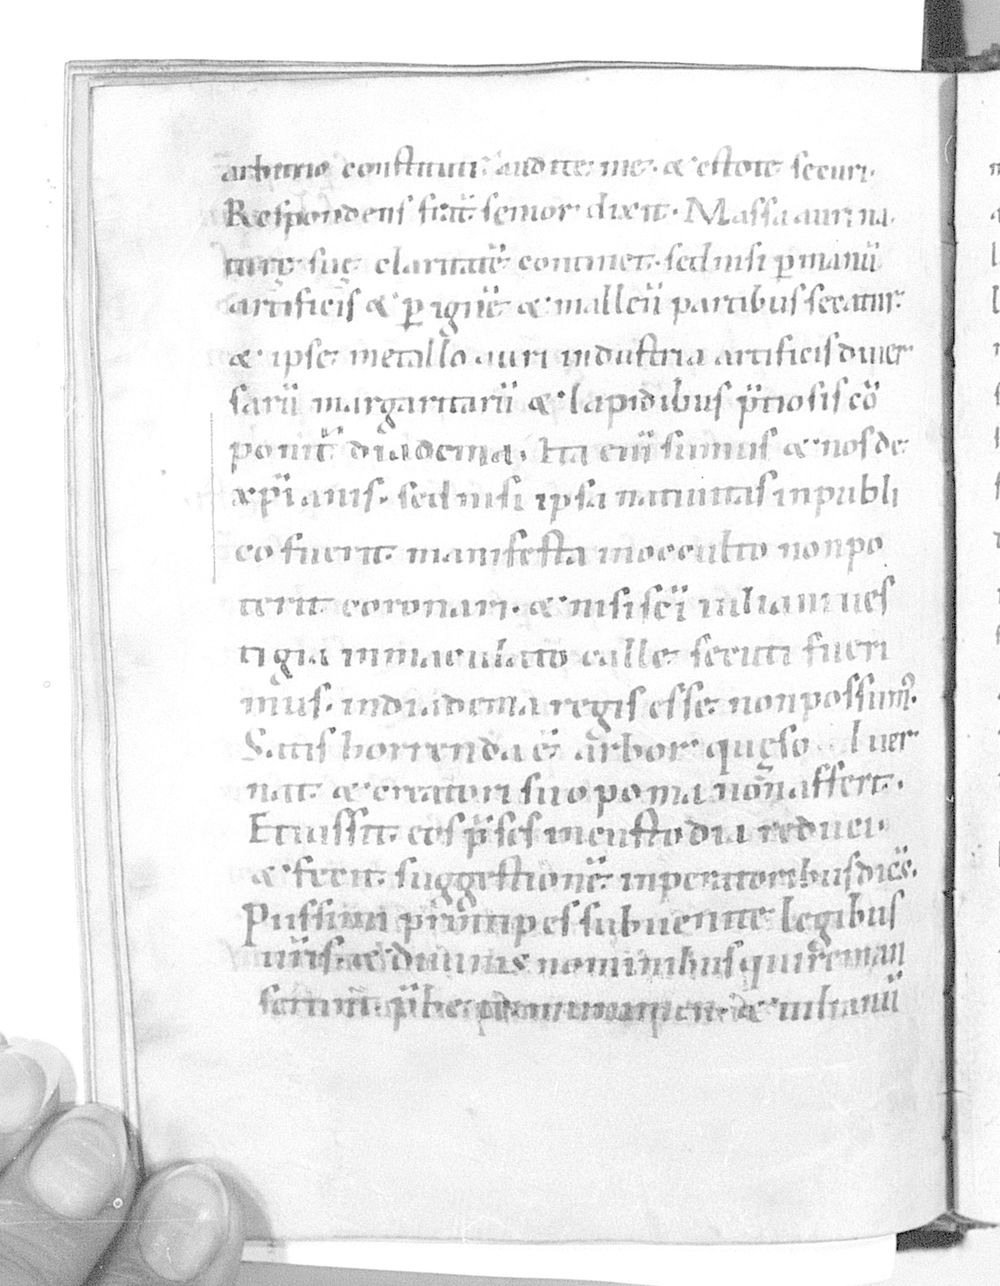 arbitrio constitui. audite me. & estote securi.
Respondens frat̄ senior dixit. Massa auri na
turę suę claritatē continet. sed nisi p̄ manū
artificis & p̄ ignē & malleū partibus secatur.
& ipse metallo auri industria artificis diuer
sarū margaritarū & lapidibus p̄tiosis cō
ponit̄ diadema. Ita enī sumus & nos de
xp̄ianis. sed nisi ipsa natiuitas inpubli
co fuerit manifesta inocculto nonpo
terit coronari. & nisi sc̄i iuliani ues
tigia inmaculato calle secuti fueri
mus. indiadema regis esse nonpossum᷒.
Satis horrenda ē arbor quęso uer
nat & creatori suo poma non affert.
Et iussit eos p̄ses incustodia reduci.
& fecit suggestionē inperatoribus dicē.
Piissimi principes subuenite legibus
uris. & diuinis nominibus qui reman
serunt. & iulianū